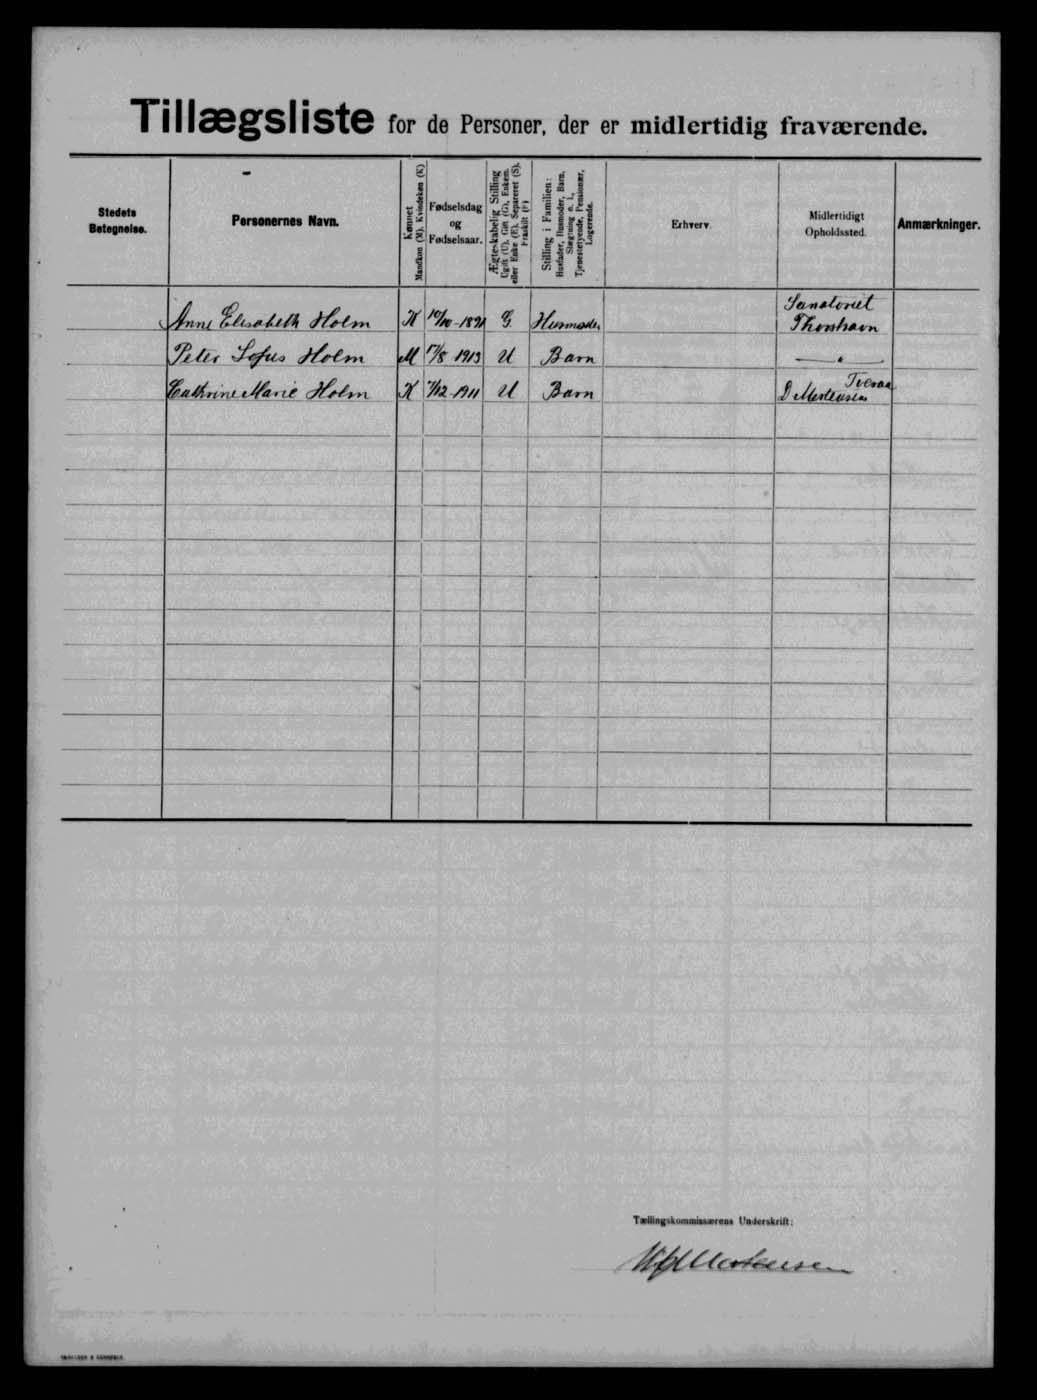 Tillægsliste for de Personer, der er midlertidig fraværende.
Stedets Betegnelse.
Personernes Navn.
Kønnet
Mandkøn (M). Kvindekøn (K)
Fødselsdag
og
Fødselsaar.
Ægteskabelig Stilling
Ugift (U), Gift (G), Enkem.
eller Enke (E), Separeret (S),
Fraskilt (F)
Stilling i Familien:
Husfader, Husmoder, Barn,
Slægtning o. l.,
Tjenestetyende, Pensionær,
Logerende.
Erhverv.
Midlertidigt
Opholdssted.
Anmærkninger.
Anne Elisabeth Holm K 10/10-1891 G Husmoder Sanatoriet Thorshavn
Peter Sofus Holm M 17/8 1913 U Barn — " —
Cathrine Marie Holm K 7/12-1911 U Barn D Mortensen Tveraa
Tællingskommissærens Underskrift:
Mortensen